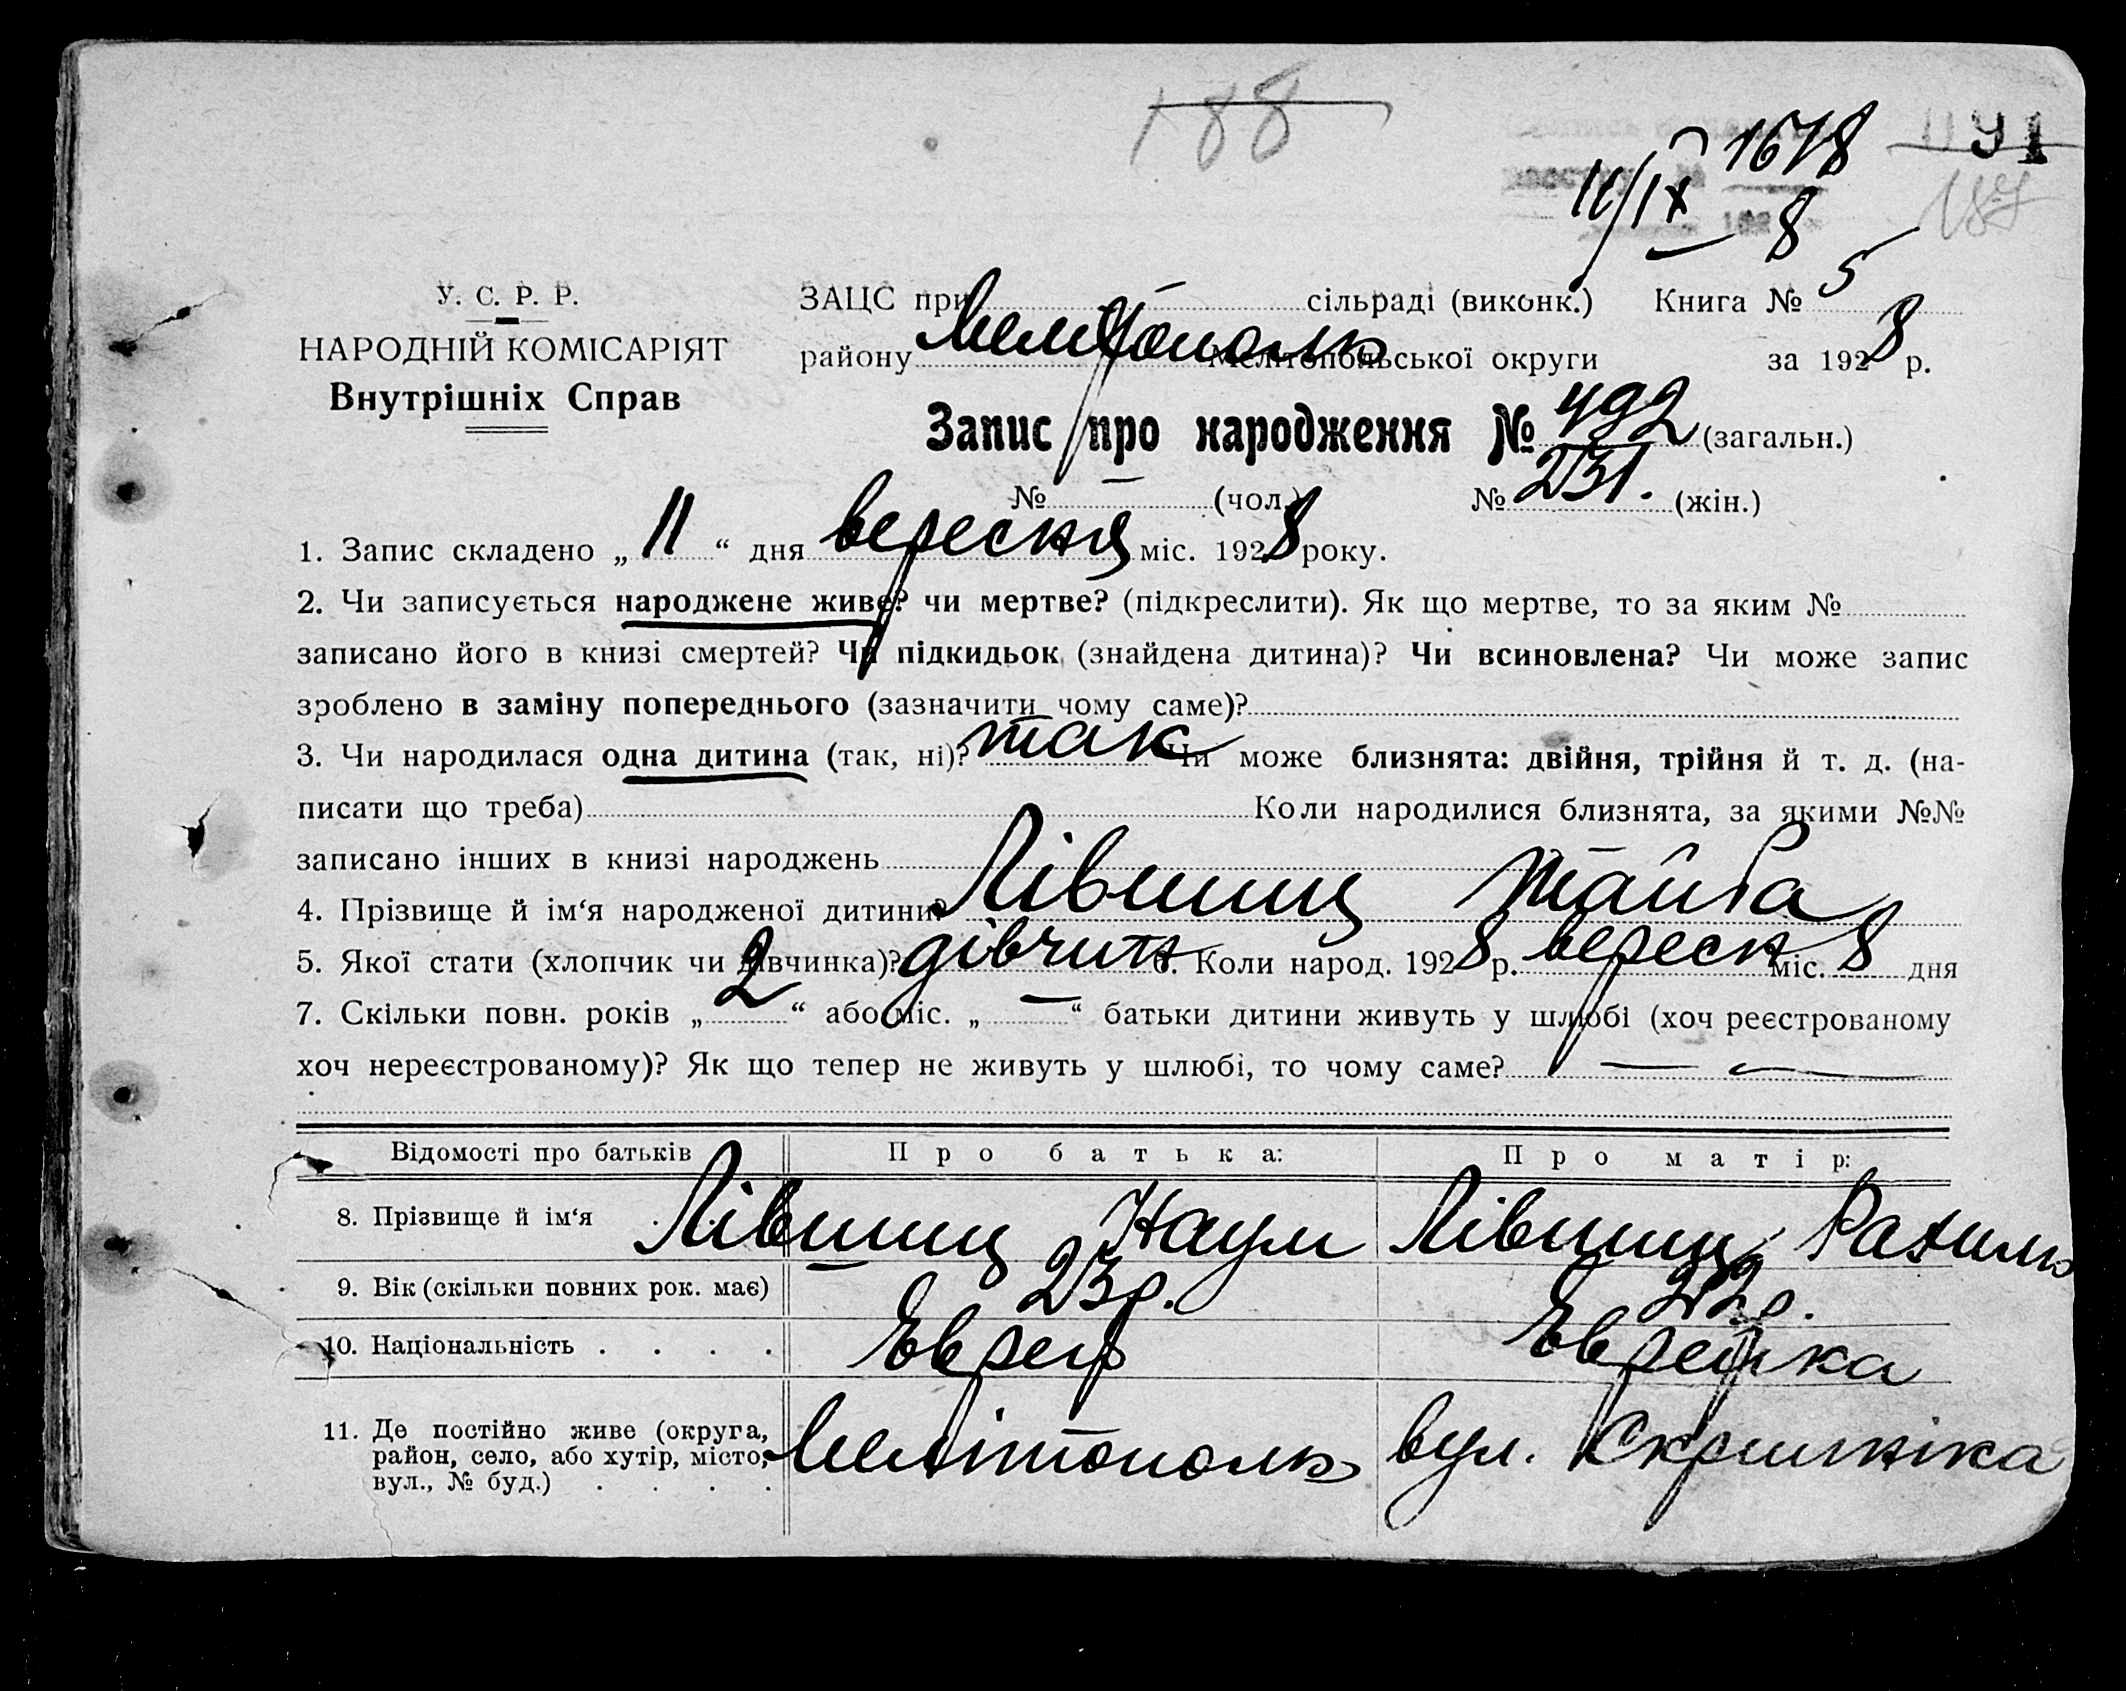 188
1678
11/IX 8
91
187
У. С. Р. Р.
НАРОДНІЙ КОМІСАРІЯТ
Внутрішніх Справ
ЗАЦС при сільраді (виконк.) Книга № 5
району Мелітополь Мелітопольської округи за 1928 р.
Запис про народження № 492 (загальн.)
№ — (чол.) № 231. (жін.)
1. Запис складено „ 11 “ дня вересня міс. 1928 року.
2. Чи записується народжене живе? чи мертве? (підкреслити). Як що мертве, то за яким №
записано його в книзі смертей? Чи підкидьок (знайдена дитина)? Чи всиновлена? Чи може запис
зроблено в заміну попереднього (зазначити чому саме)?
3. Чи народилася одна дитина (так, ні)? так Чи може близнята: двійня, трійня й т. д. (на-
писати що треба) Коли народилися близнята, за якими №№
записано інших в книзі народжень
4. Прізвище й ім‘я народженої дитини? Лівшиц
5. Якої стати (хлопчик чи дівчинка)? дівчин 6. Коли народ. 1928 р. вересн міс. 8 дня
7. Скільки повн. років „ 2 “ або міс. „ — “ батьки дитини живуть у шлюбі (хоч реєстрованому
хоч нереєстрованому)? Як що тепер не живуть у шлюбі, то чому саме? — —
Відомості про батьків Про батька: Про матір:
8. Прізвище й ім‘я . Лівшиц Наум Лівшиц Рахиль
9. Вік (скільки повних рок. має) 23р. 22р.
10. Національність . . . . Еврей Еврейка
11. Де постійно живе (округа,
район, село, або хутір, місто, Мелітополь вул. Скрипніка
вул., № буд.) . . . .